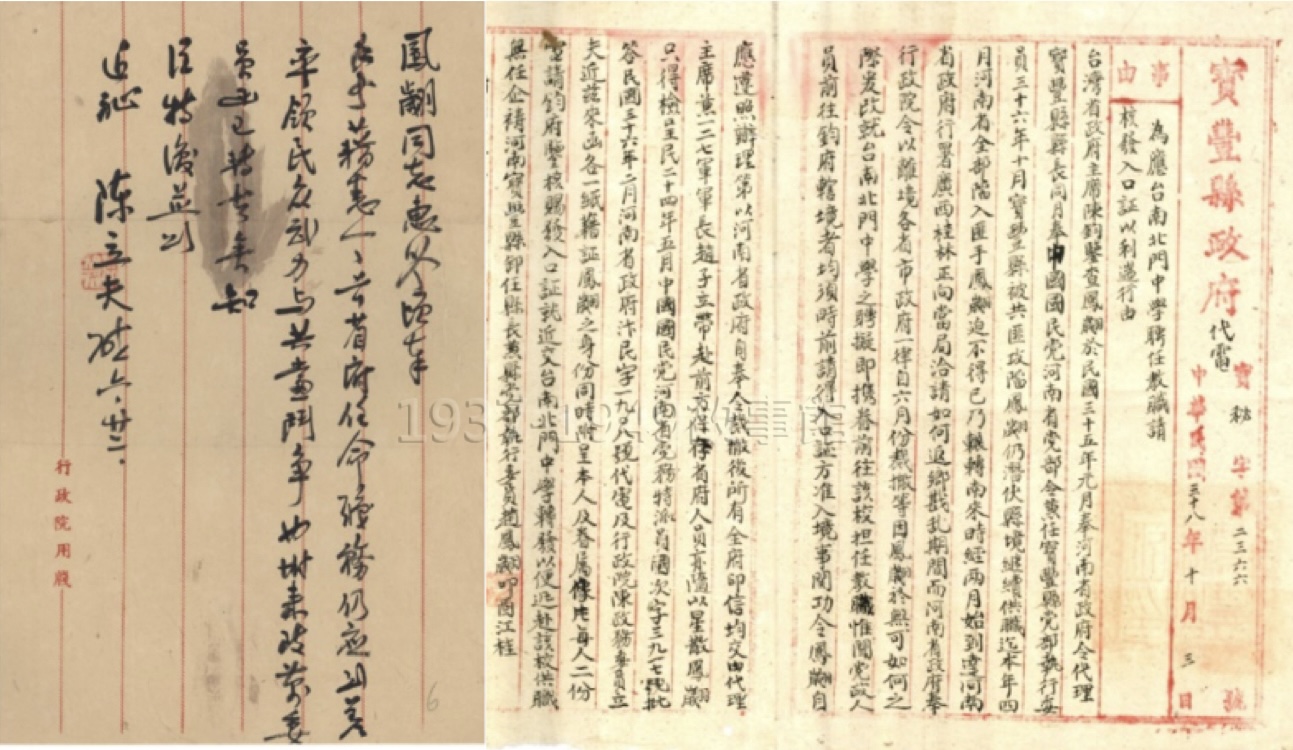 寶豐縣政府代電
寶秘字第二三六六號
中華民國三十八年十月三日
事由
為應台南北門中學聘任教職請
核發入口証以利遄行由
台灣省政府主席陳鈞鑒查鳳翽於民國三十五年元月奉河南省政府令代理
寶豐縣縣長同月奉中國國民党河南省党部令兼任寶豐縣党部執行委
員三十六年十月寶豐縣被共匪攻陷鳳翽仍潛伏縣境繼續供職迄本年四
月河南省全部陷入匪手鳳翽迫不得已乃輾轉南來時經兩月始到達河南
省政府行署廣西桂林正向當局洽請如何返鄉戡乱期間而河南省政府奉
行政院令以離境各省市政府一律自六月份裁撤等因鳳翽於無可如何之
際爰改就台南北門中學之聘擬即携眷前往該校担任教職惟聞党政人
員前往鈞府轄境者均須時前請得入口証方准入境事関功令鳳翽自
應遵照辦理第以河南省政府自奉令裁撤後所有全府印信均交由代理
主席兼一二七軍軍長趙子立帶赴前方保存省府人員亦隨以星散鳳翽
只得檢呈民二十四年五月中國國民党河南省党務特派員國次字三九一七號批
答民國三十六年二月河南省政府汴民字一九〇八號代電及行政院陳政務委員立
夫近茲來函各一紙藉証鳳翽之身份同時附呈本人及眷属像片每人二份
電請鈞府鑒核賜發入口証就近交台南北門中學轉發以便迅赴該校供職
無任企禱河南寶豐縣卸任縣長兼縣党部執行委員趙鳳翽叩酉江桂
鳳翽同志惠
手書藉悉一一省府任命職務仍應
率領民眾武力與共黨鬥爭
員
特復並頌
近祉 陳立夫 六、廿二
行政院用牋
1937-1949故事館
6